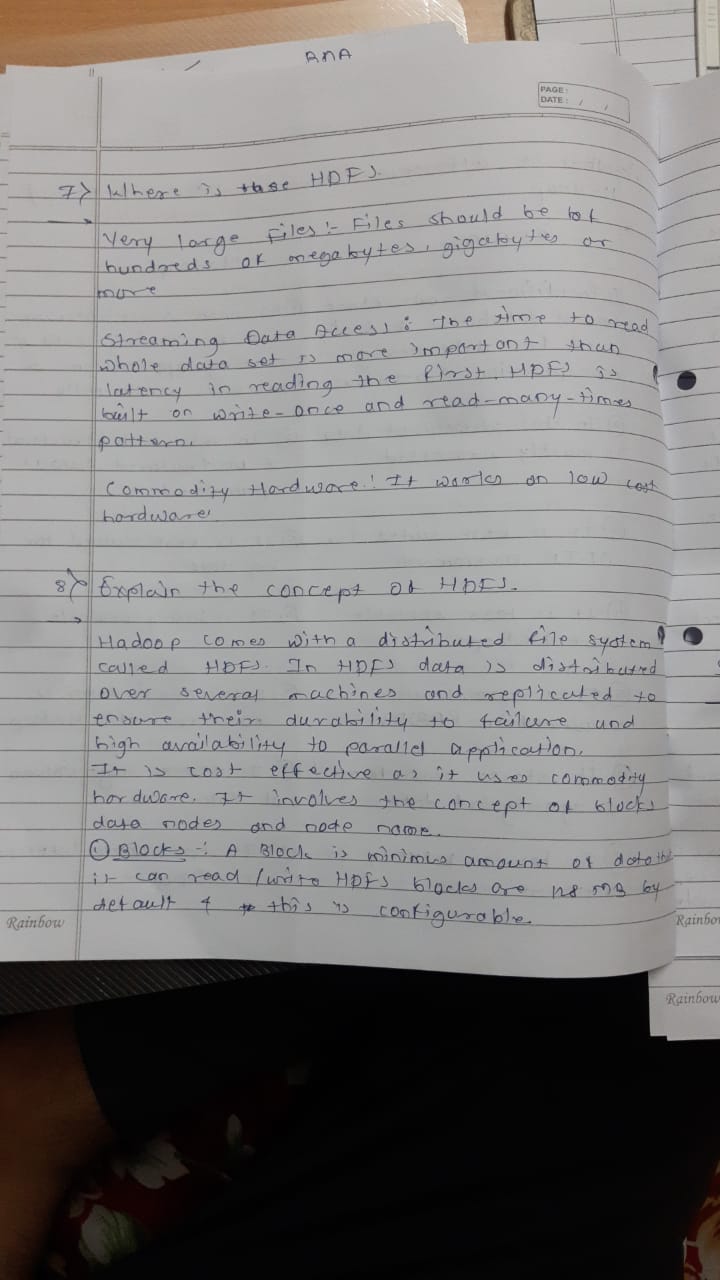 BMA
PAGE:
DATE: / /
7> Where is these HDFS.
Very large Files :- Files should be of
hundreds of megabytes, gigabytes or
more
Streaming Data Access : The time to read
whole data set is more important than
latency in reading the first. HDFS is
built on write-once and read-many-times
pattern.
Commodity Hardware : It works on low cost
hardware.
8> Explain the concept of HDFS.
Hadoop comes with a distributed file system
called HDFS. In HDFS data is distributed
over several machines and replicated to
ensure their durability to failure and
high availability to parallel application.
It is cost effective as it uses commodity
hardware. It involves the concept of blocks
data nodes and node name.
① Blocks -: A Block is minimus amount of data
it can read / write HDFS blocks are MB by
default & this is configurable.
Rainbow
Rainbow
Rainbow